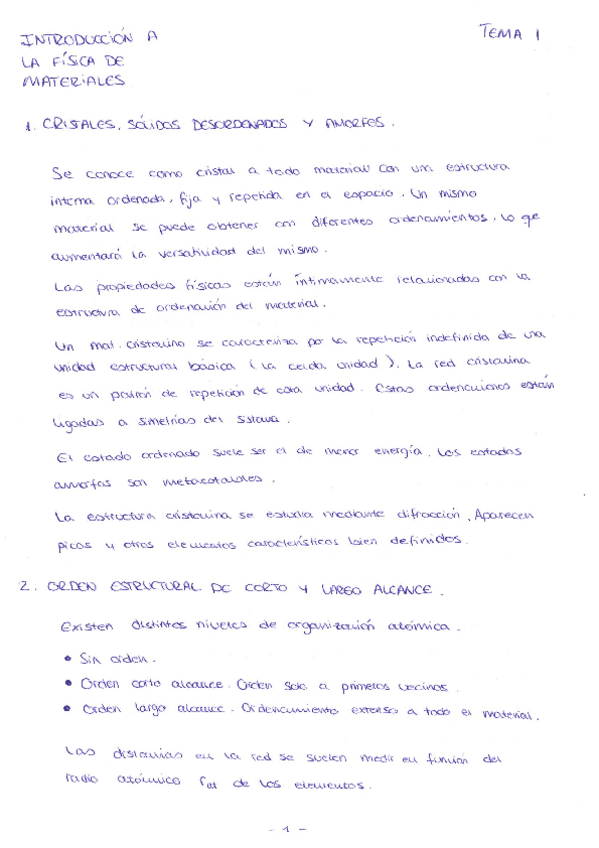 INTRODUCCIÓN A
LA FÍSICA DE
MATERIALES
TEMA 1
1. CRISTALES, SÓLIDOS DESORDENADOS Y AMORFOS.
Se conoce como cristal a todo material con una estructura
interna ordenada, fija y repetida en el espacio. Un mismo
material se puede obtener con diferentes ordenamientos, lo que
aumentará la versatilidad del mismo.
Las propiedades físicas están íntimamente relacionadas con la
estructura de ordenación del material.
Un mat. cristalino se caracteriza por la repetición indefinida de una
unidad estructural básica (la celda unidad). La red cristalina
es un patrón de repetición de esta unidad. Estas ordenaciones están
ligadas a simetrías del sistema.
El estado ordenado suele ser el de menor energía. Los estados
amorfos son metaestables.
La estructura cristalina se estudia mediante difracción. Aparecen
picos y otros elementos característicos bien definidos.
2. ORDEN ESTRUCTURAL DE CORTO Y LARGO ALCANCE.
Existen distintos niveles de organización atómica.
• Sin orden.
• Orden corto alcance. Orden solo a primeros vecinos.
• Orden largo alcance. Ordenamiento extenso a todo el material.
Las distancias en la red se suelen medir en función del
radio atómico rat de los elementos.
- 1 -